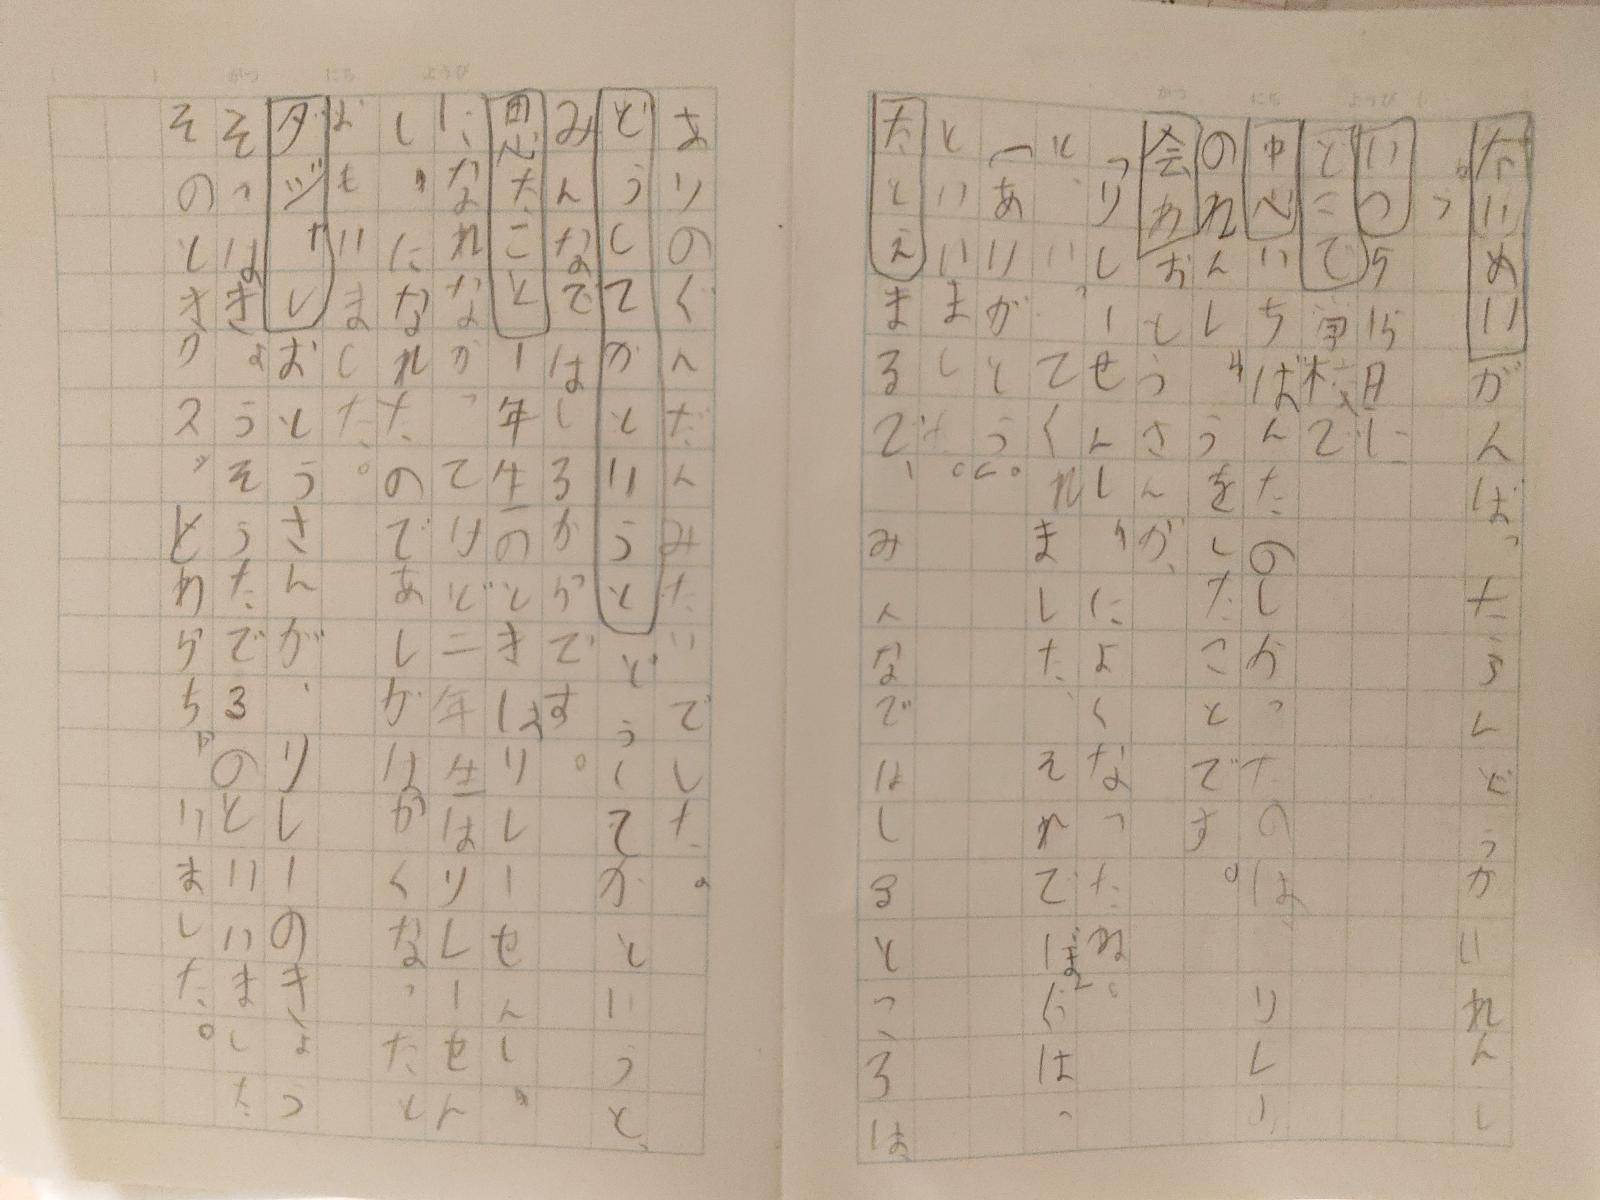 だいめいがんばったうんどうかいれんし
ゅう
いつ5月15日に
とこで学校で
中心いちばんたのしかったのは、リレー
のれんしゅうをしたことです。
会わおとうさんが、
「リレーせんしゅによくなったね。」
と、いってくれました、それでぼくはっ
「ありがとう。」
といいました。
たとえまるで、みんなではしるところは、
ありのぐんだんみたいでした。
どうしてかというとどうしてかというと、
みんなではしるからです。
思たこと1年生のときはリレーせんしゅ
になれなかってけど二年生はリレーせん
しゅになれたのであしがはがくなったと
おもいました。
ダジャレおとうさんが、リレーのきょう
そっはきょうそうたでるのといいました
そのときクスッとわらちゃいました。
がつ
にち
ようび
がつ
にち
ようび